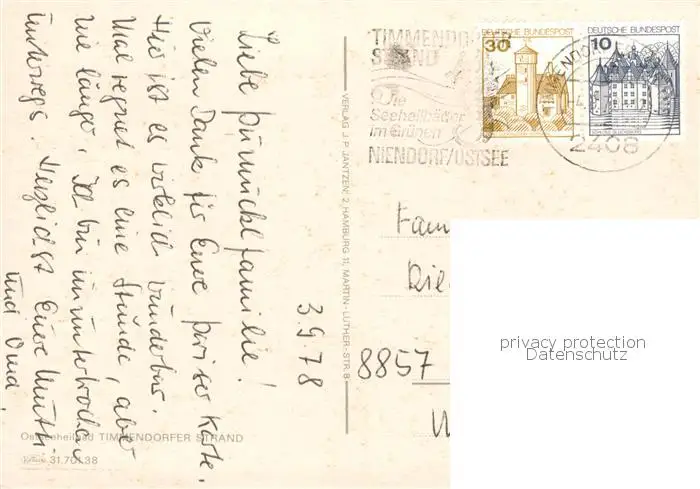 3.9.78
Liebe Pumucklfamilie!
Vielen Dank für Eure Pariser Karte.
Hier ist es wirklich wunderbar.
Mal regnet es eine Stunde, aber
nie länger. Ich bin ununterbrochen
unterwegs. Herzlichst Eure Mutti
und Oma.
Ostseeheilbad TIMMENDORFER STRAND
Krüger 31.701.38
VERLAG J. P. JANTZEN, 2 HAMBURG 11, MARTIN-LUTHER-STR. 8
TIMMENDORFER
STRAND
Die
Seeheilbäder
im Grünen
NIENDORF/OSTSEE
DEUTSCHE BUNDESPOST
30
DEUTSCHE BUNDESPOST
10
SCHLOSS GLÜCKSBURG
2408
Fam
Rie
8857
W
privacy protection
Datenschutz